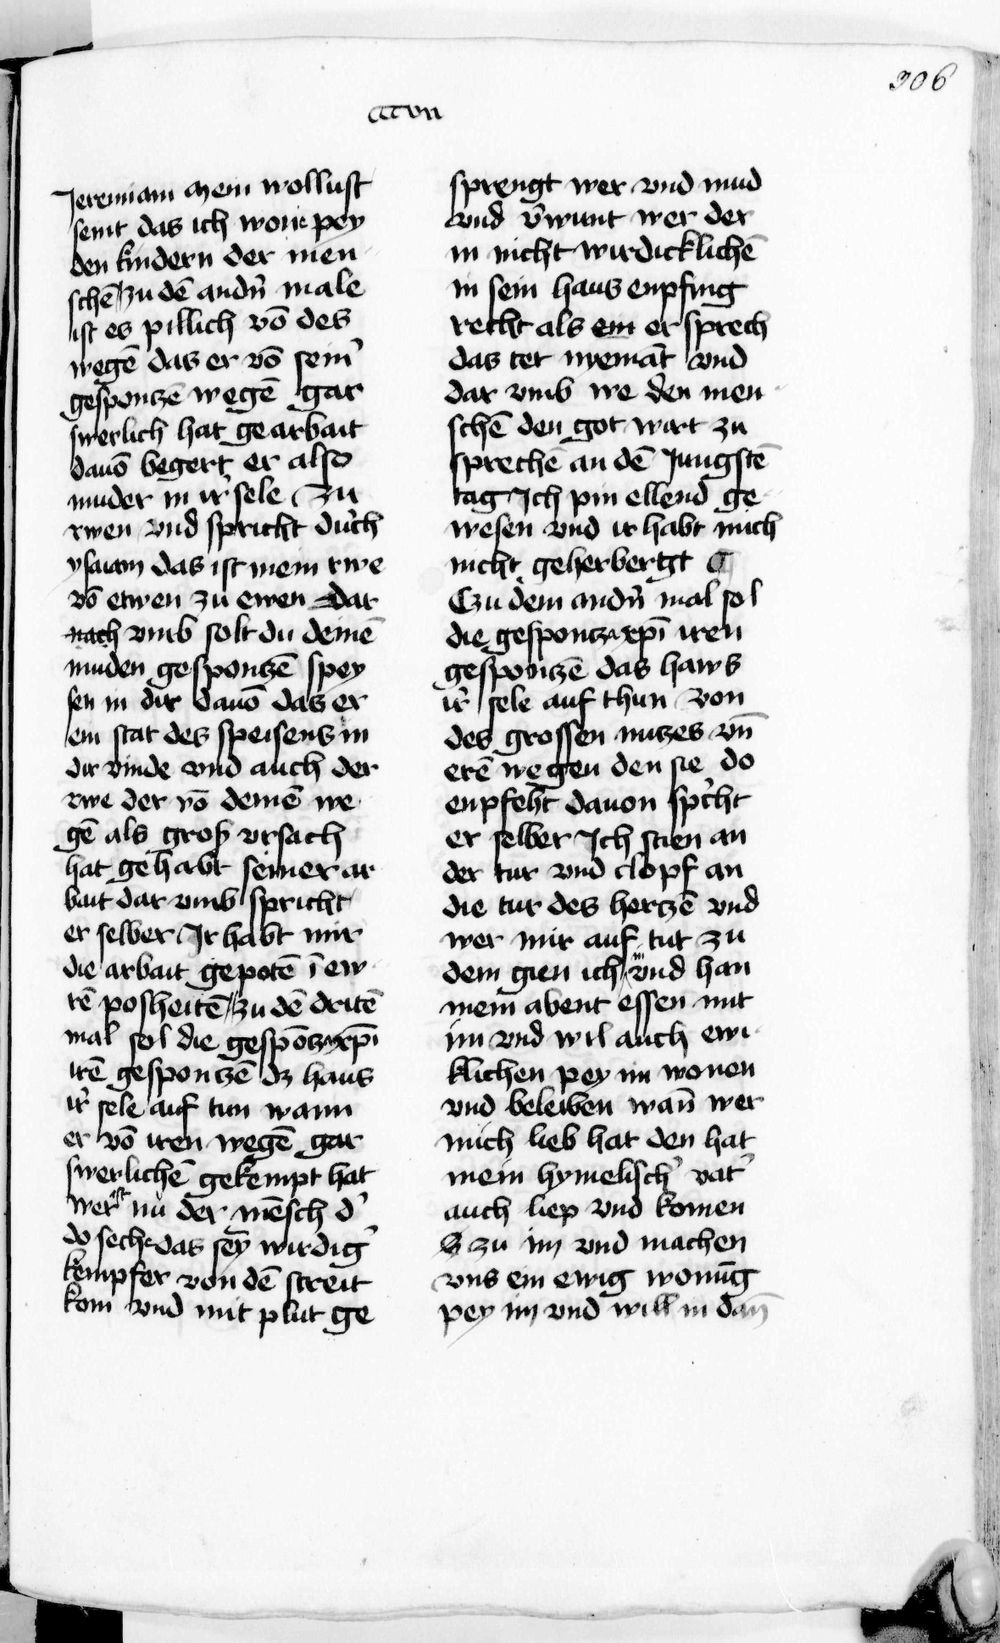 306
ccc vii
Jeremiam Mein wollust
seint das ich wone pey
den kindern der men
schē zu dē andn̄ male
ist es pillich vō des
wegē das er vō seinˀ
gesponczē wegē gar
swerlich hat gearbait
dauō begert er also
muder in irˀ sele Zu
rwen vnd spricht durch
ysaiam das ist mein rwe
vō ewen zu ewen Dar
nach vmb solt du deinē
muden gesponczē spey
sen in dir dauō das er
ein stat des speisens in
dir vinde vnd auch der
rwe der vō deinē we
gē als groß vrsach
hat gehabt seiner ar
bait dar vmb spricht
er selber Ir habt mir
die arbait gepotē ī ew
rē posheitē zu dē dritē
mal sol die gespōcz xpī
irē gesponczē dz haus
irˀ sele auf tun wann
er vō iren wegē gar
swerlichē gekempt hat
wer ist nu der mēsch dˀ
do seche das sey wirdigˀ
kempfer von dē streit
kom vnd mit plut ge
sprengt wer vnd mud
vnd v̄wunt wer der
in nicht wirdicklichē
in sein haus enpfing
recht als ein er sprech
das tet niemāt vnd
dar vmb we den men
schē den got wirt zu
sprechē an dē Jungstē
tag Ich pin ellend ge
wesen vnd ir habt mich
nicht geherbergt ¶
Czu dem andn̄ mal sol
die gesponcz xpī iren
gesponczē das haws
irˀ sele auf thun von
des grossen nutzes vn̄
erē wegen den sie do
enpfeht dauon spˀcht
er selber Ich stien an
der tur vnd clopf an
die tur des hertzē vnd
wer mir auf tut zu
dem gien ich in vnd han
mein abent essen mit
im vnd wil auch ewi
klichen pey im wonen
vnd beleiben wan̄ wer
mich lieb hat den hat
mein hymelischˀ vatˀ
auch liep vnd komen
zu im vnd machen
vns ein ewig wonūg
pey im vnd will in dan̄